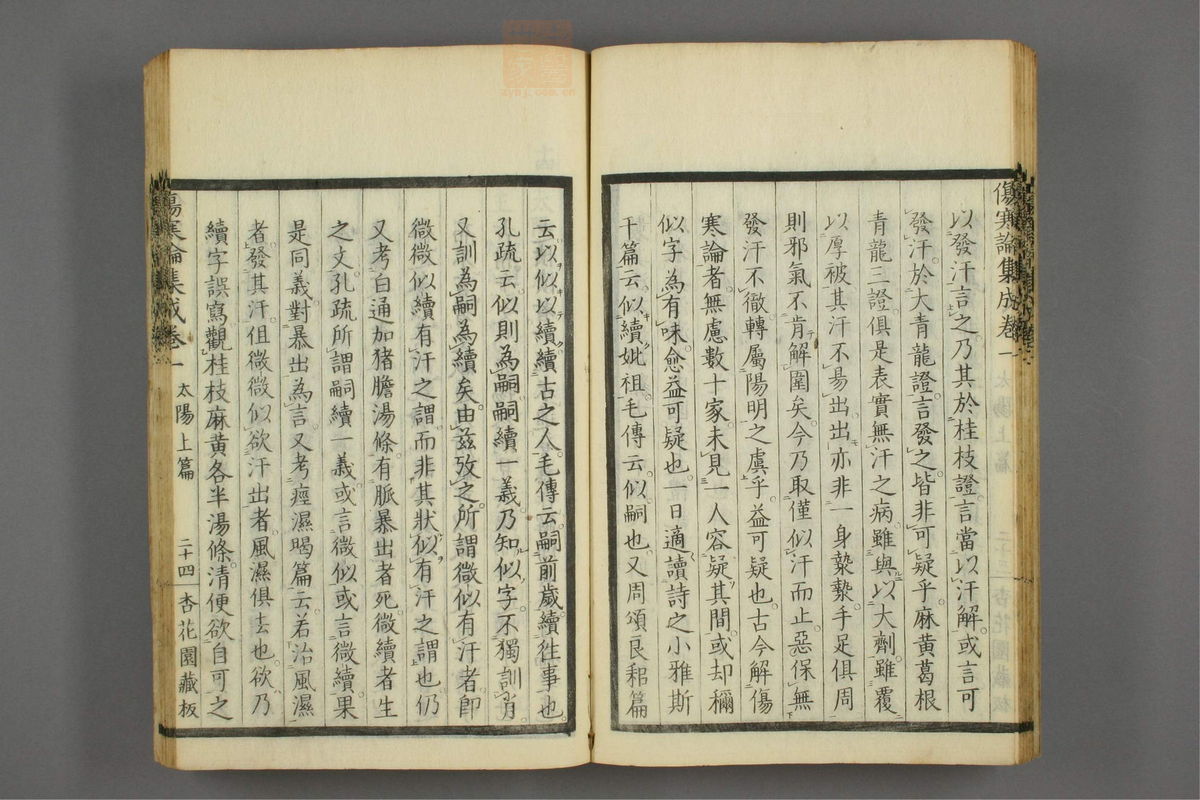 傷寒論集成卷一
以發汗言之乃其於桂枝證言當以汗解或言可
發汗於大青龍證言發之皆非可疑乎麻黃葛根
青龍三證俱是表實無汗之病雖與以大劑雖覆
以厚被其汗不易出出亦非一身漐漐手足俱周
則邪氣不肯解圍矣今乃取僅似汗而止惡保無
發汗不徹轉屬陽明之虞乎益可疑也古今解傷
寒論者無慮數十家未見一人容疑其間或却稱
似字為有味愈益可疑也一日適讀詩之小雅斯
干篇云似續妣祖毛傳云似嗣也又周頌良耜篇
云以似以續續古之人毛傳云嗣前歲續往事也
孔疏云似則為嗣嗣續一義乃知似字不獨訓肖
又訓為嗣為續矣由茲攷之所謂微似有汗者即
微微似續有汗之謂而非其狀似有汗之謂也仍
又考白通加猪膽湯條有脈暴出者死微續者生
之文孔疏所謂嗣續一義或言微似或言微續果
是同義對暴出為言又考痙濕暍篇云若治風濕
者發其汗但微微似欲汗出者風濕俱去也欲乃
續字誤寫觀桂枝麻黃各半湯條清便欲自可之
傷寒論集成卷一 太陽上篇 二十四 杏花園藏板
zyyj.com.cn